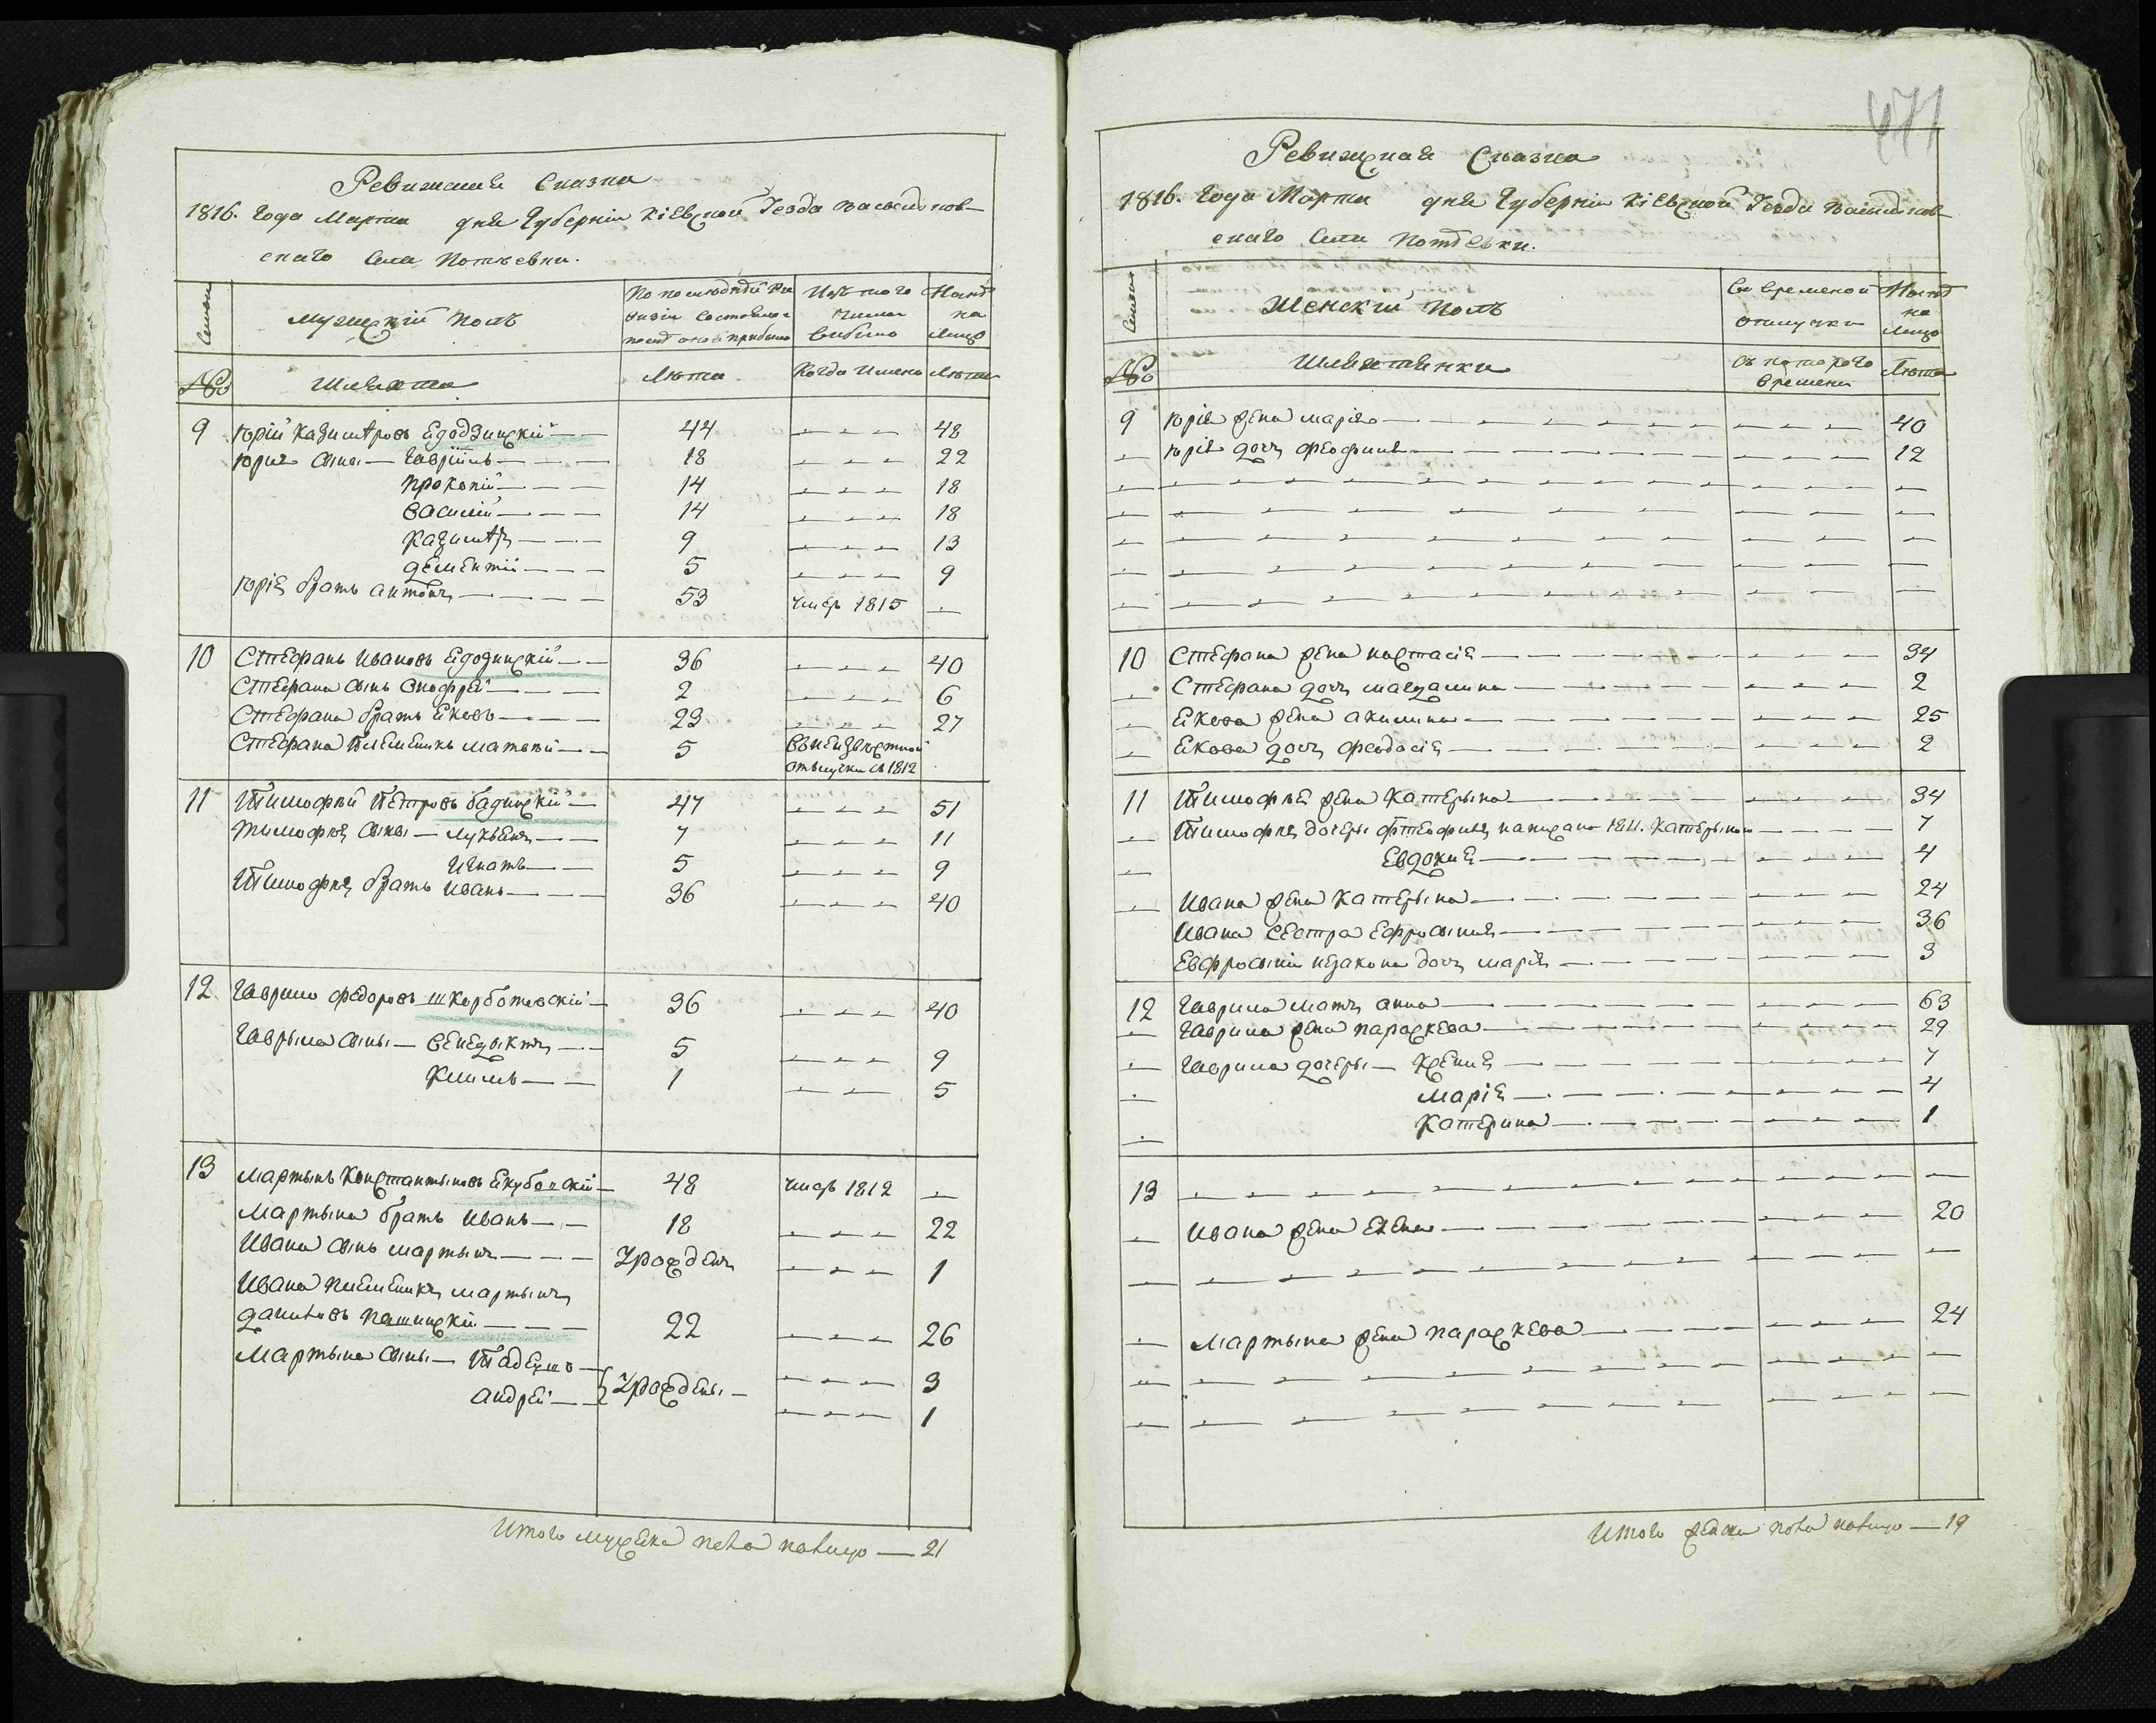 Ревижская Сказка
1816. Года Марта дня Губерніи Кіевской Уезда Васильков-
скаго Села Потіевки.
Семьи
Мужескій Полъ
По последней ре
визіи состояло и
после оной прибыло
Изъ того
числа
выбыло
Ныне
на
Лицо
№
Шляхта
Лета
Когда именно
Лета
9 Юрій Казимѣровъ Ядодзинскій — — 44 — — — 48
Юрия Сыны — Гавріилъ — — — 18 — — — 22
Прокопій — — — 14 — — — 18
Василій — — — 14 — — — 18
Казимѣръ — — — 9 — — — 13
Дементій — — — 5 — — — 9
Юрія братъ Антонъ — — — — 53 умеръ 1815 —
10 Стефанъ Ивановъ Ядодинскій — — 36 — — — 40
Стефана сынъ Онофрей — — — 2 — — — 6
Стефана братъ Яковъ — — — 23 — — — 27
Стефана племеникъ Матвій — — 5 въ неизвестной
отлучки съ 1812
11 Тимофѣй Петровъ Бадинскій — 47 — — — 51
Тимофѣя сыны — Лукьянъ — — 7 — — — 11
Игнатъ — — 5 — — — 9
Тимофѣя братъ Иванъ — — — — 36 — — — 40
12 Гаврило Федоровъ Шкорботовскій — 36 — — — 40
Гаврыла сыны — Венедыктъ — — 5 — — — 9
Климъ — — 1 — — — 5
13 Мартынъ Константыновъ Якубовскій — 48 умеръ 1812 —
Мартына братъ Иванъ — — 18 — — — 22
Ивана сынъ Мартынъ — — — Урожденъ — — — 1
Ивана племеникъ Мартынъ
Даниловъ Пашинскій — — — 22 — — — 26
Мартына сыны — Тадеушъ — Урождены — — — — 3
Андрей — — — — — 1
Итого мужска пола налицо — 21
471
Ревижская Сказка
1816. Года Марта дня Губерніи Кіевской Уезда Васильков-
скаго Села Потіевки.
Семьи
Женскій Полъ
Во временой
отлучки
Ныне
на
Лицо
№
Шляхтянки
Съ котораго
времени
Лета
9 Юрія жена Марія — — — — — — — — — 40
— Юрія дочь Феофилія — — — — — — — — — 12
10 Стефана жена Настасія — — — — — — — — 34
— Стефана дочь Магдалина — — — — — — — 2
— Якова жена Акилина — — — — — — — — 25
— Якова дочь Феодосія — — — — — — — — 2
11 Тимофѣя жена Катерына — — — — — — — — 34
— Тимофѣя дочеры Фтеофиля написана 1811. Катерыною — — — — 7
— Евдокия — — — — — — — — 4
— Ивана жена Катерына — — — — — — — — 24
Ивана сестра Ефросыния — — — — — — — — 36
Евфросыніи незакона дочь Марія — — — — — — — 3
12 Гаврила мать Анна — — — — — — — — 63
— Гаврила жена Параскева — — — — — — — — 29
— Гаврила дочеры — Ксения — — — — — — — 7
Марія — — — — — — — 4
Катерина — — — — — — — 1
13 — — — — — — — — — — — —
— Ивана жена Елена — — — — — — — — 20
— Мартына жена Параскева — — — — — — — 24
Итого женска пола налицо — 19